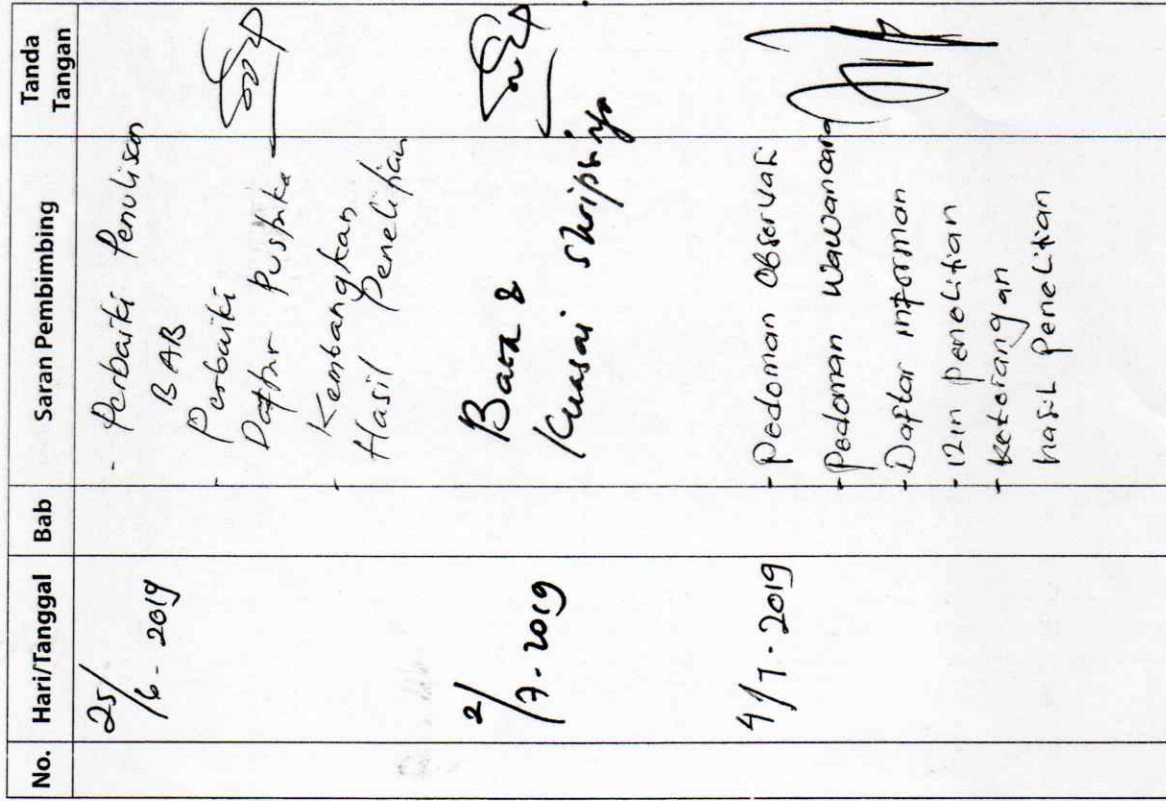 No. Hari/Tanggal Bab Saran Pembimbing Tanda Tangan
25/6-2019
- Perbaiki Penulisan
BAB
- Perbaiki
Daftar Pustaka
- Kembangkan
Hasil Penelitian
2/7-2019
Baca &
Kuasai Skripsinya
4/7-2019
- Pedoman Observasi
- Pedoman Wawancara
- Daftar informan
- izin penelitian
- keterangan
hasil penelitian